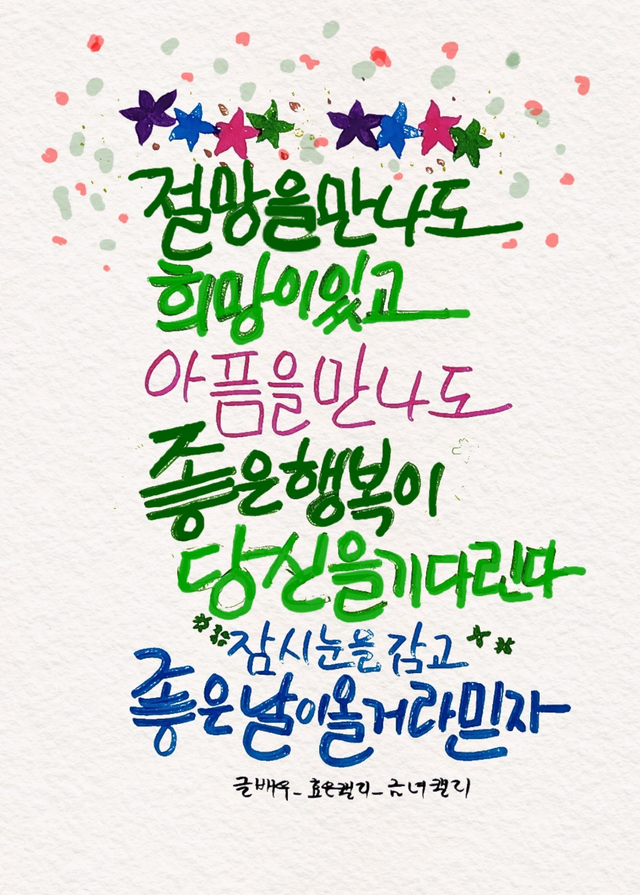 절망을만나도
희망이있고
아픔을만나도
좋은행복이
당신을기다린다
잠시눈을 감고
좋은날이올거라믿자
글배우_효은캘리_금녀캘리